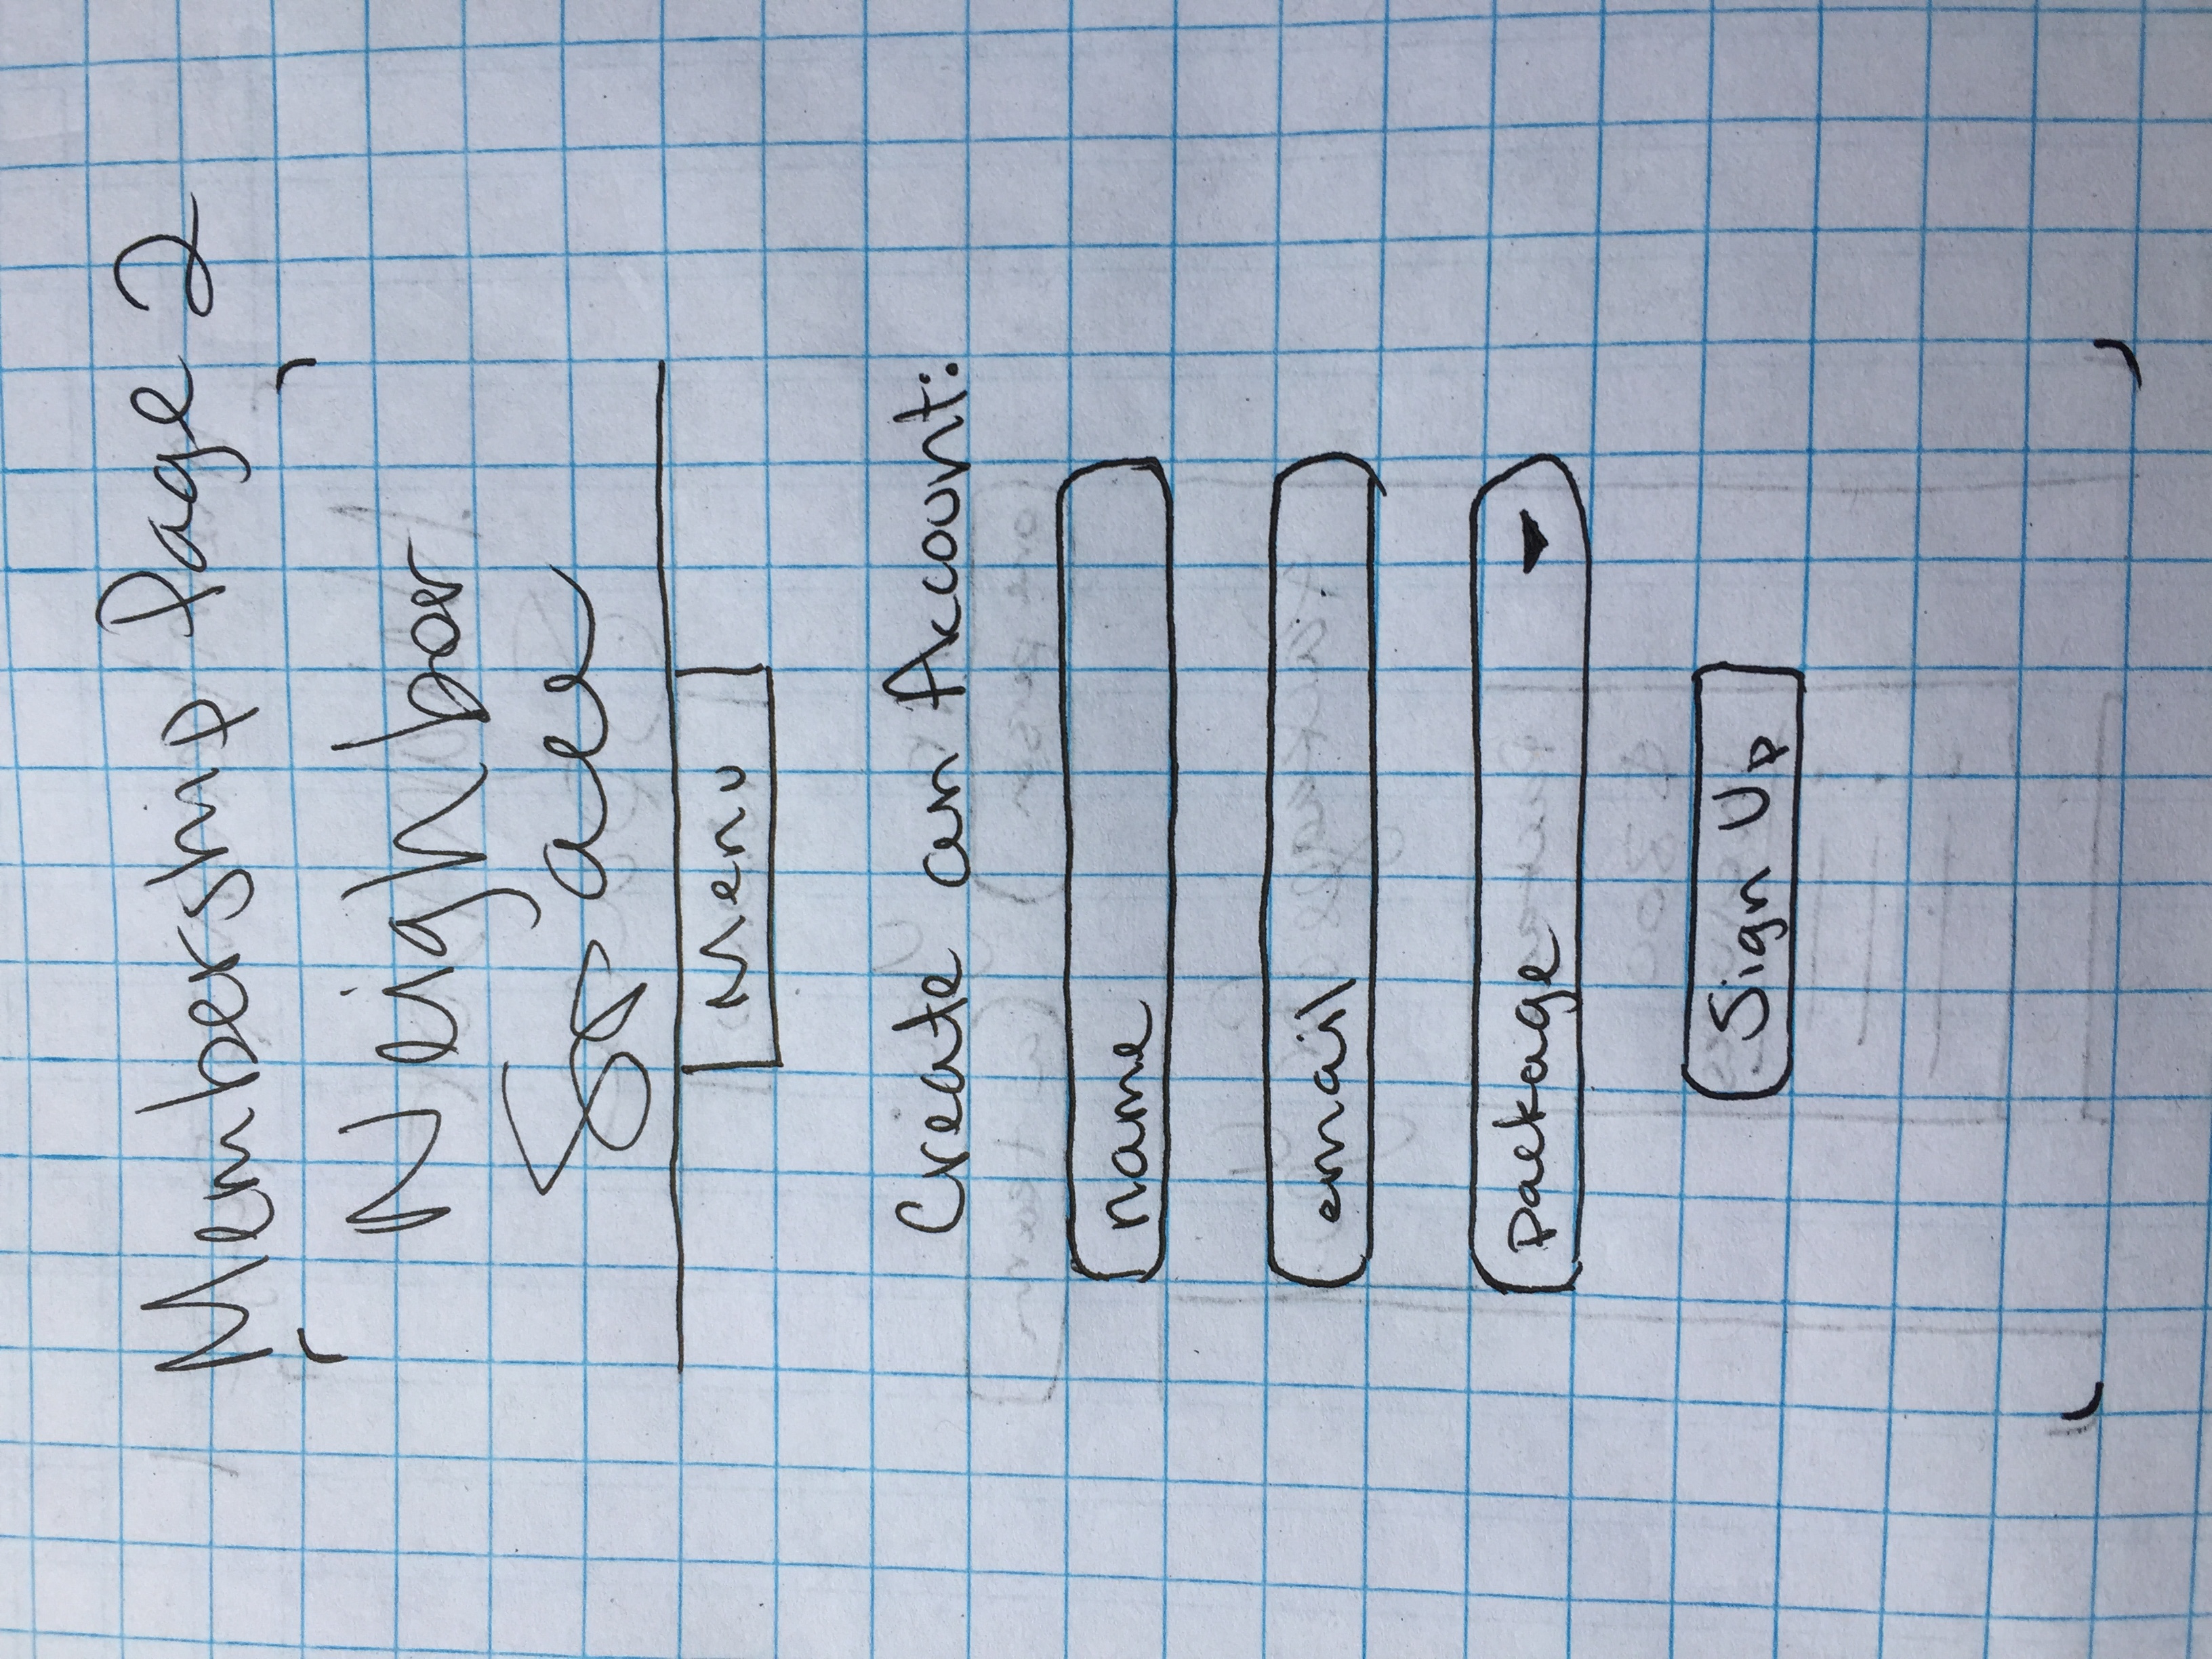 Membership Page 2
Neighbor
Space
Menu
Create an Account:
name
email
package
Sign Up